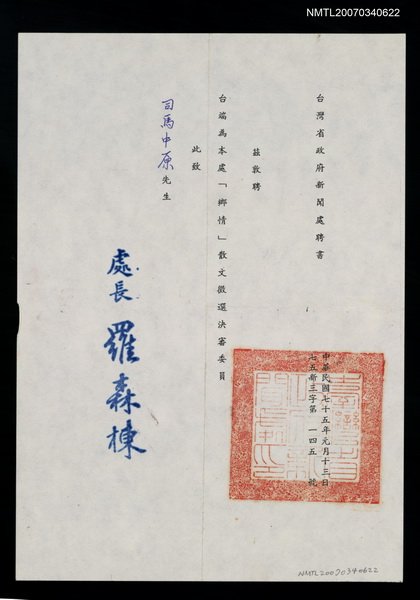 NMTL20070340622
台灣省政府新聞處聘書
中華民國七十五年元月十三日
七五新三字第一四五號
茲敦聘
台端為本處「鄉情」散文徵選決審委員
此致
司馬中原先生
處長 羅森棟
NMTL20070340622